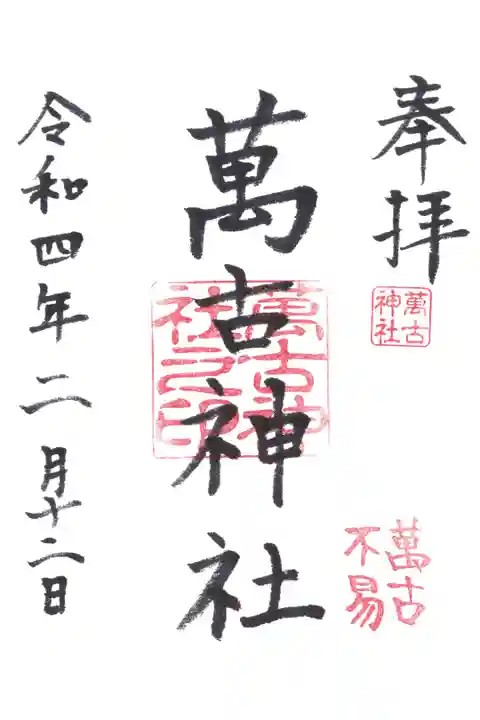 奉拝
萬古
神社
萬古
不易
萬古神社
萬古神
社之印
令和四年二月十二日